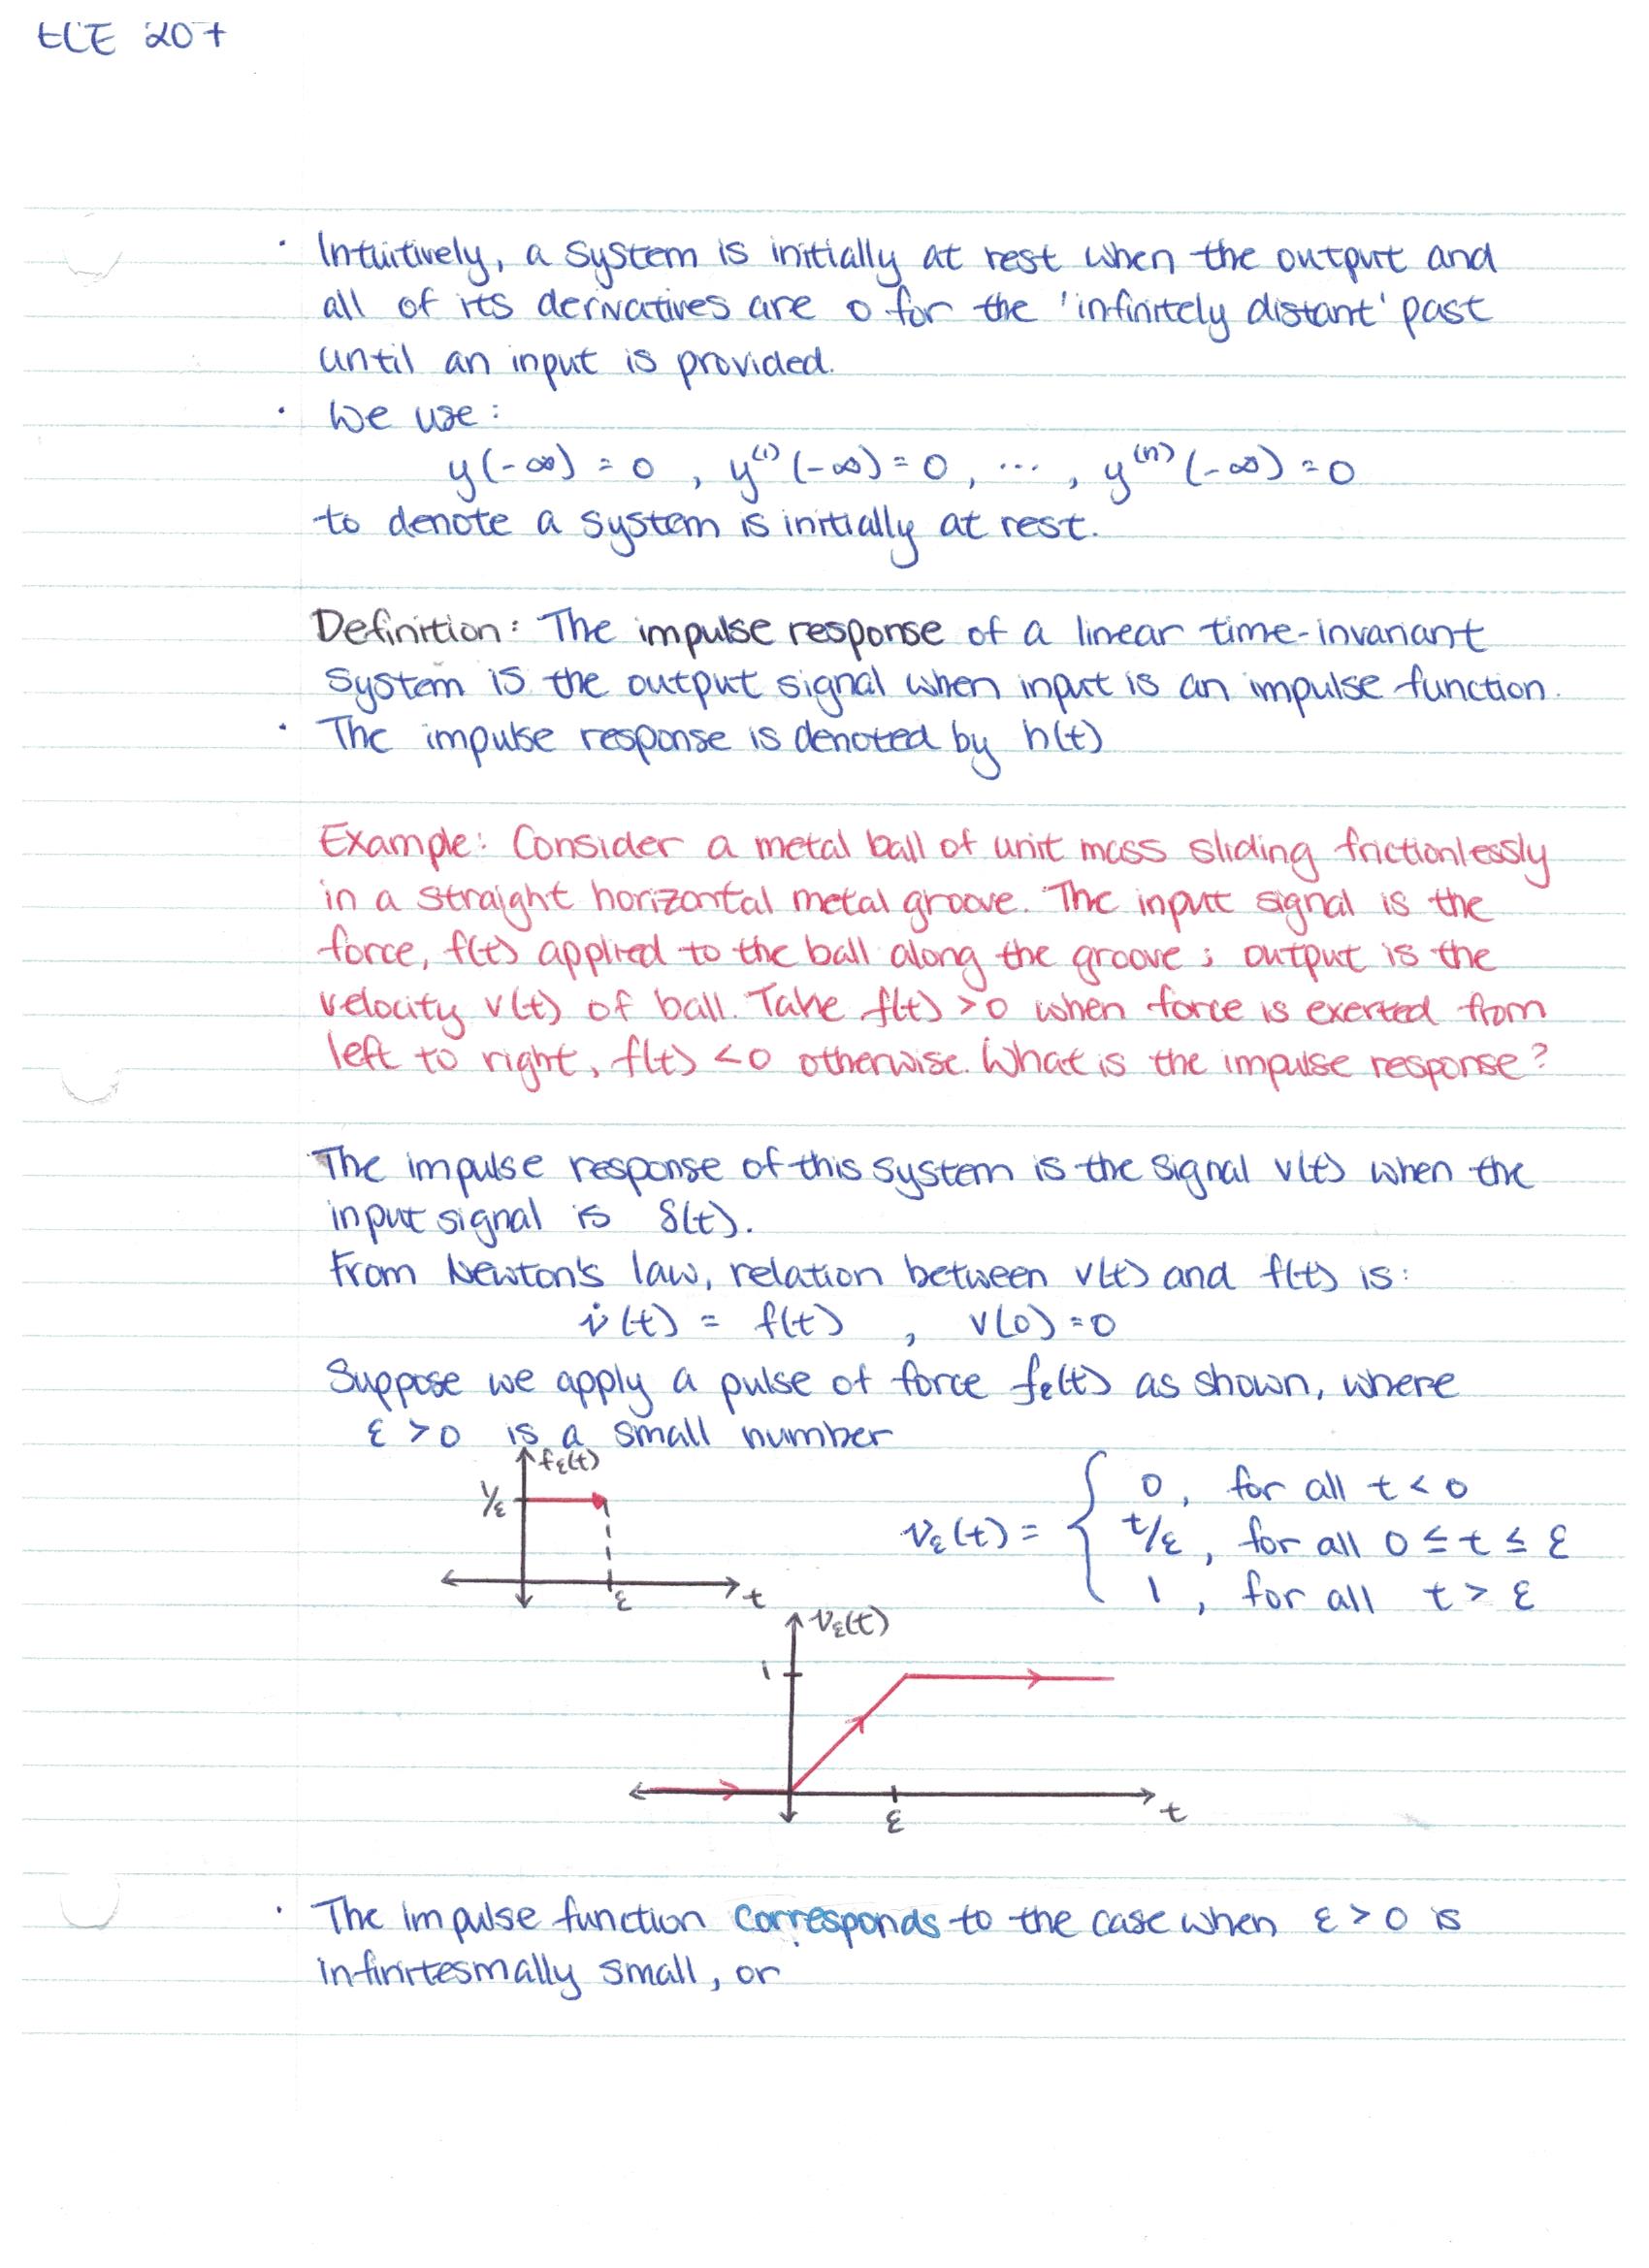 ECE 207
· Intuitively, a system is initially at rest when the output and
all of its derivatives are 0 for the 'infinitely distant' past
until an input is provided.
· We use:
y(-∞) = 0 , y⁽¹⁾(-∞) = 0, ... , y⁽ⁿ⁾(-∞) = 0
to denote a system is initially at rest.
Definition: The impulse response of a linear time-invariant
system is the output signal when input is an impulse function.
· The impulse response is denoted by h(t)
Example: Consider a metal ball of unit mass sliding frictionlessly
in a straight horizontal metal groove. The input signal is the
force, f(t) applied to the ball along the groove; output is the
velocity v(t) of ball. Take f(t) >0 when force is exerted from
left to right, f(t) <0 otherwise. What is the impulse response?
The impulse response of this system is the signal v(t) when the
input signal is δ(t).
From Newton's law, relation between v(t) and f(t) is:
v̇(t) = f(t) , v(0) = 0
Suppose we apply a pulse of force fε(t) as shown, where
ε > 0 is a small number
fε(t)
1/ε
ε
t
vε(t) = { 0, for all t < 0
t/ε, for all 0 ≤ t ≤ ε
1, for all t > ε
vε(t)
1
ε
t
· The impulse function corresponds to the case when ε > 0 is
infinitesmally small, or